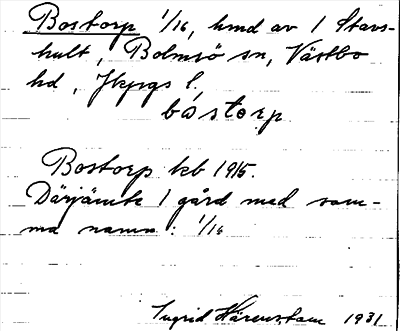 Bostorp 1/16, hmd av 1 Stavs-
hult, Bolmsö sn, Västbo
hd, Jkpgs l.
båstorp
Bostorp kb 1915.
Därjämte 1 gård med sam-
ma namn: 1/16
Ingrid Härenstam 1931